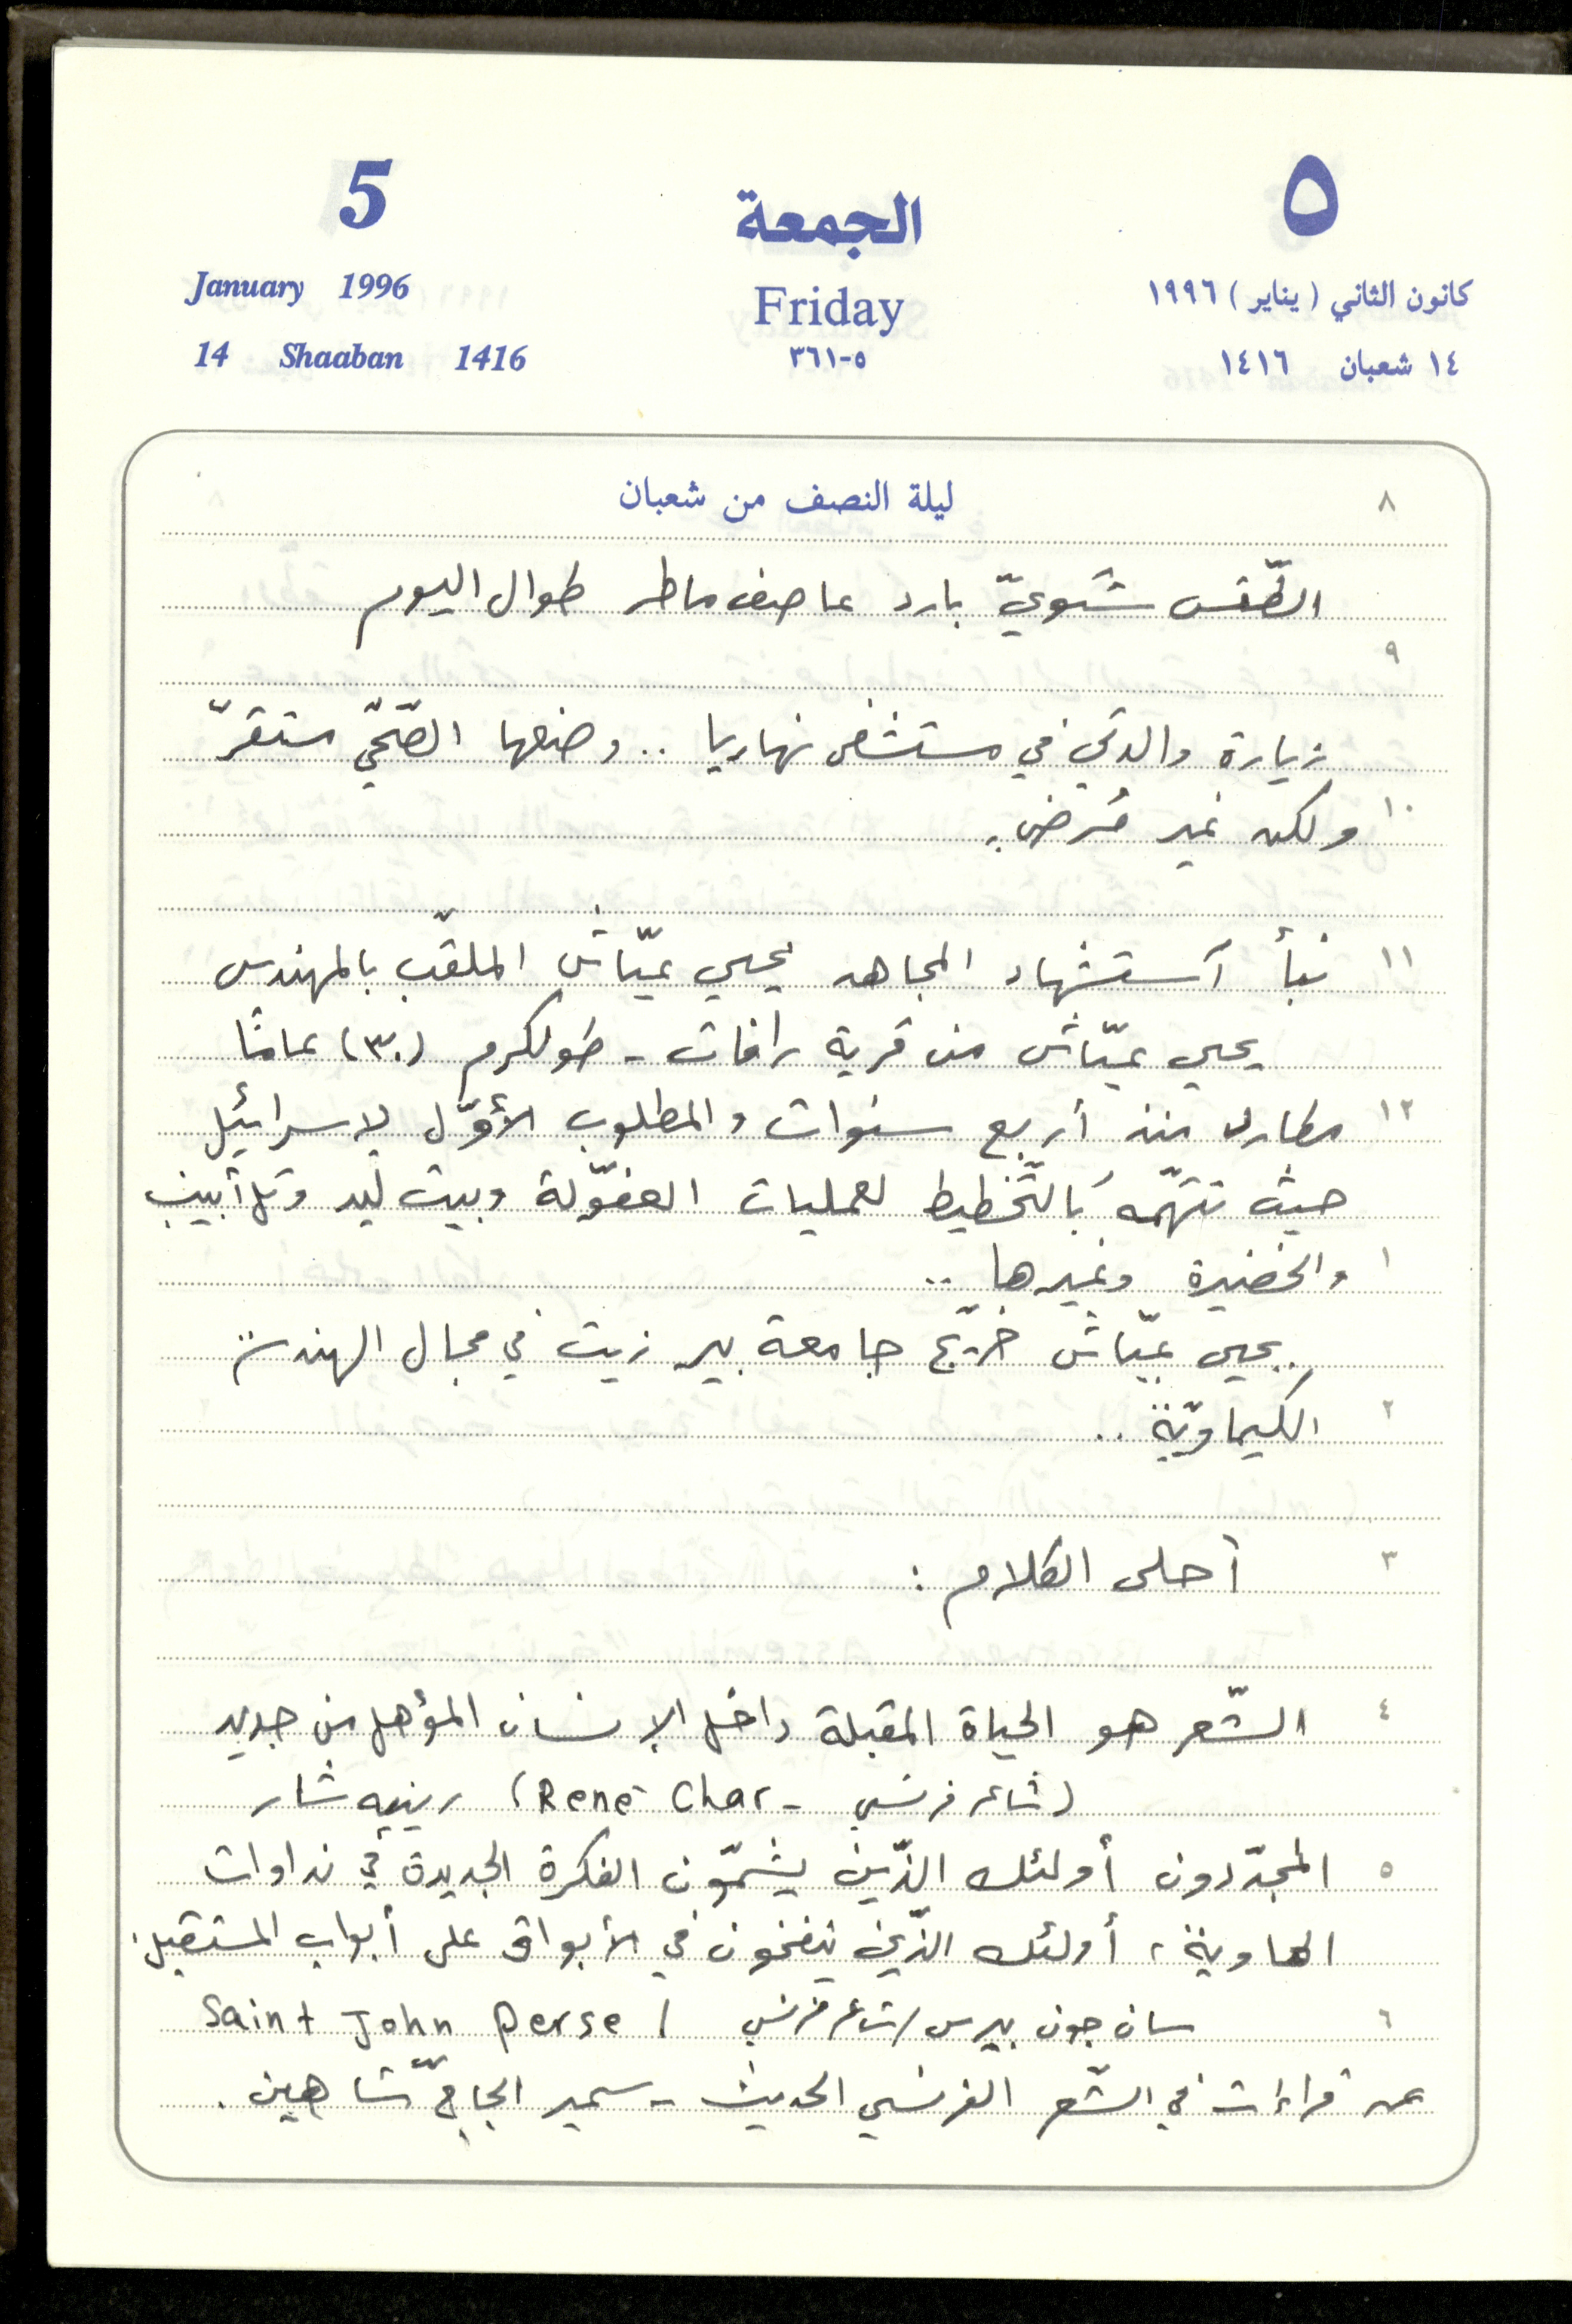 5 الجمعة ٥
January 1996 Friday كانون الثاني ( يناير ) ١٩٩٦
14 Shaaban 1416 ٥-٣٦١ ١٤ شعبان ١٤١٦
٨ ليلة النصف من شعبان
الطّقس شتويّ بارد عاصف ماطر طوال اليوم
٩
زيارة والدتي في مستشفى نهاريا .. وضعها الصّحّيّ مستقرّ
١٠ ولكن غير مُرضٍ.
١١ نبأ آستشهاد المجاهد يحيى عيّاش الملقّب بالمهندس
يحيى عيّاش من قرية رافات - طولكرم (٣٠) عامًا
١٢ مطارد منذ أربع سنوات والمطلوب الأوّل لإسرائيل
حيث تتهمّه بالتّخطيط لعمليات العفوّلة وبيت ليد وتل أبيب
١ والخضيرة وغيرها ..
يحيى عيّاش خرّيج جامعة بير زيت في مجال الهندسة
٢ الكيماويّة ..
٣ أحلى الكلام :
٤ الشّعر هو الحياة المقبلة داخل الإنسان المؤهل من جديد
(شاعر فرنسي - René Char) رينيه شار
٥ المجدّدون أولئك الذّين يشمّون الفكرة الجديدة في نداوات
الهاوية، أولئك الذّين ينفخون في الأبواق على أبواب المستقبل.
٦ سان جون بيرس / شاعر فرنسي / Saint John Perse
عن قراءات في الشّعر الفرنسي الحديث - سمير الحاجّ شاهين .